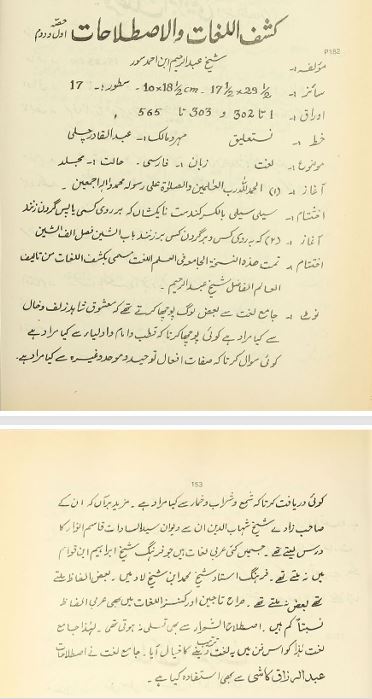 کشف اللغات والاصطلاحات حصّہ اول و دوم
P182
مؤلفہ:۔ شیخ عبدالرحیم ابن احمد سور
سائز:۔ 10x18½ cm ۔ 17½x29½ ۔ سطور:۔ 17
اوراق:۔ 1 تا 302 و 303 تا 565
خط:۔ نستعلیق مہر و مالک:۔ عبدالقادر چلبی
موضوع:۔ لغت زبان:۔ فارسی۔ حالت:۔ مجلد
آغاز:۔ (۱) الحمد للہ رب العٰلمین والصلوٰۃ علی رسولہ محمد والہ اجمعین۔
اختتام:۔ سیلی سیلی بالکسر کندست تا یکشاں کہ بر روی کسی یا پس گردن زنند
آغاز:۔ (۲) کہ بر روی کس و بر گردن کس بر زنند باب الشین فصل الف الشین
اختتام:۔ تمت ھذہ النسخۃ الجامع فی العلم اللغت مسمی بکشف اللغات من تالیف
العالم الفاضل شیخ عبدالرحیم۔
نوٹ:۔ جامع لغت سے بعض لوگ پوچھا کرتے تھے کہ معشوق شاہد زلف و خال
سے کیا مراد ہے کوئی پوچھا کرتا کہ قطب و امام و اولیاء سے کیا مراد ہے
کوئی سوال کرتا کہ صفات افعال توحید و موحد وغیرہ سے کیا مراد ہے۔
153
کوئی دریافت کرتا کہ شمع و شراب و خمار سے کیا مراد ہے۔ مزید برآں کہ ان کے
صاحب زادے شیخ شہاب الدین ان سے دیوان سیدالسادات قاسم انوار کا
درس لیتے تھے۔ جسمیں کئی عربی لغات ہیں جو فرہنگ شیخ ابراہیم ابن قوام
میں نہ ملتے تھے۔ فرہنگ استاد شیخ محمد ابن شیخ لاد میں۔ بعض الفاظ ملتے
تھے بعض نہ ملتے تھے۔ صراح تاجین اور کنز اللغات میں بھی عربی الفاظ
نسبتاً کم ہیں۔ اصطلاح الشعراء سے بھی تسلی نہ ہوتی تھی۔ لہٰذا جامع
لغت ہٰذا کو اس فن میں یہ لغت ترتیب دینے کا خیال آیا۔ جامع لغت نے اصطلاحات
عبدالرزاق کاشی سے بھی استفادہ کیا ہے۔